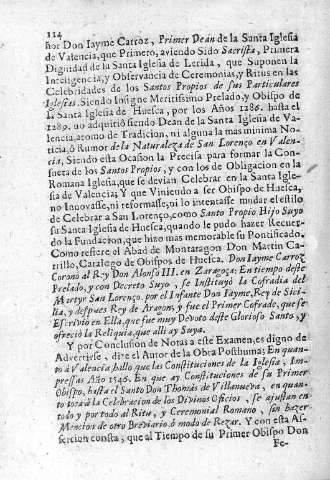 114
por Don Iayme Carroz, Primer Dean de la Santa Iglesia
de Valencia, que Primero, aviendo Sido Sacrista, Primera
Dignidad de la Santa Iglesia de Lerida, que Suponen la
Inteligencia, y Observancia de Ceremonias, y Ritus en las
Celebridades de los Santos Propios de sus Particulares
Iglesias. Siendo Insigne Meritissimo Prelado, y Obispo de
la Santa Iglesia de Huesca, por los Años 1286. hasta el
1289. no adquiriò siendo Dean de la Santa Iglesia de Va-
lencia, atomo de Tradicion, ni alguna la mas minima No-
ticia, ò Rumor de la Naturaleza de San Lorenzo en Valen-
cia, Siendo esta Ocasion la Precisa para formar la Con-
sueta de los Santos Propios, y con los de Obligacion en la
Romana Iglesia, que se devian Celebrar en la Santa Igle-
sia de Valencia; Y que Viniendo a ser Obispo de Huesca,
no Innovasse, ni reformasse, ni lo intentasse mudar el estilo
de Celebrar a San Lorenço, como Santo Propio Hijo Suyo
su Santa Iglesia de Huesca, quando le pudo hazer Recuer-
do la Fundacion, que hizo mas memorable su Pontificado.
Como refiere el Abad de Montaragon Don Martin Ca-
rrillo, Catalogo de Obispos de Huesca. Don Iayme Carroz
Coronò al Rey Don Alonso III. en Zaragoça: En tiempo deste
Prelado, y con Decreto Suyo, se Instituyò la Cofradia del
Martyr San Lorenço, por el Infante Don Iayme, Rey de Sici-
lia, y despues Rey de Aragon, y fue el Primer Cofrade, que se
Escriviò en Ella, que fue muy Devoto deste Glorioso Santo, y
ofreciò la Reliquia, que alli ay Suya.
Y por Conclusion de Notas a este Examen, es digno de
Advertirse, dize el Autor de la Obra Posthuma: En quan-
to à Valencia hallo que las Constituciones de la Iglesia, Im-
pressas Año 1546. En que ay Constituciones de su Primer
Obispo, hasta el Santo Don Thomàs de Villanueva, en quan-
to toca à la Celebracion de los Divinos Oficios, se ajustan en
todo y por todo al Ritu, y Ceremonial Romano, sin hazer
Mencion de otro Breviario ò modo de Rezar. Y con esta As-
sercion consta, que al Tiempo de su Primer Obispo Don
Fe-